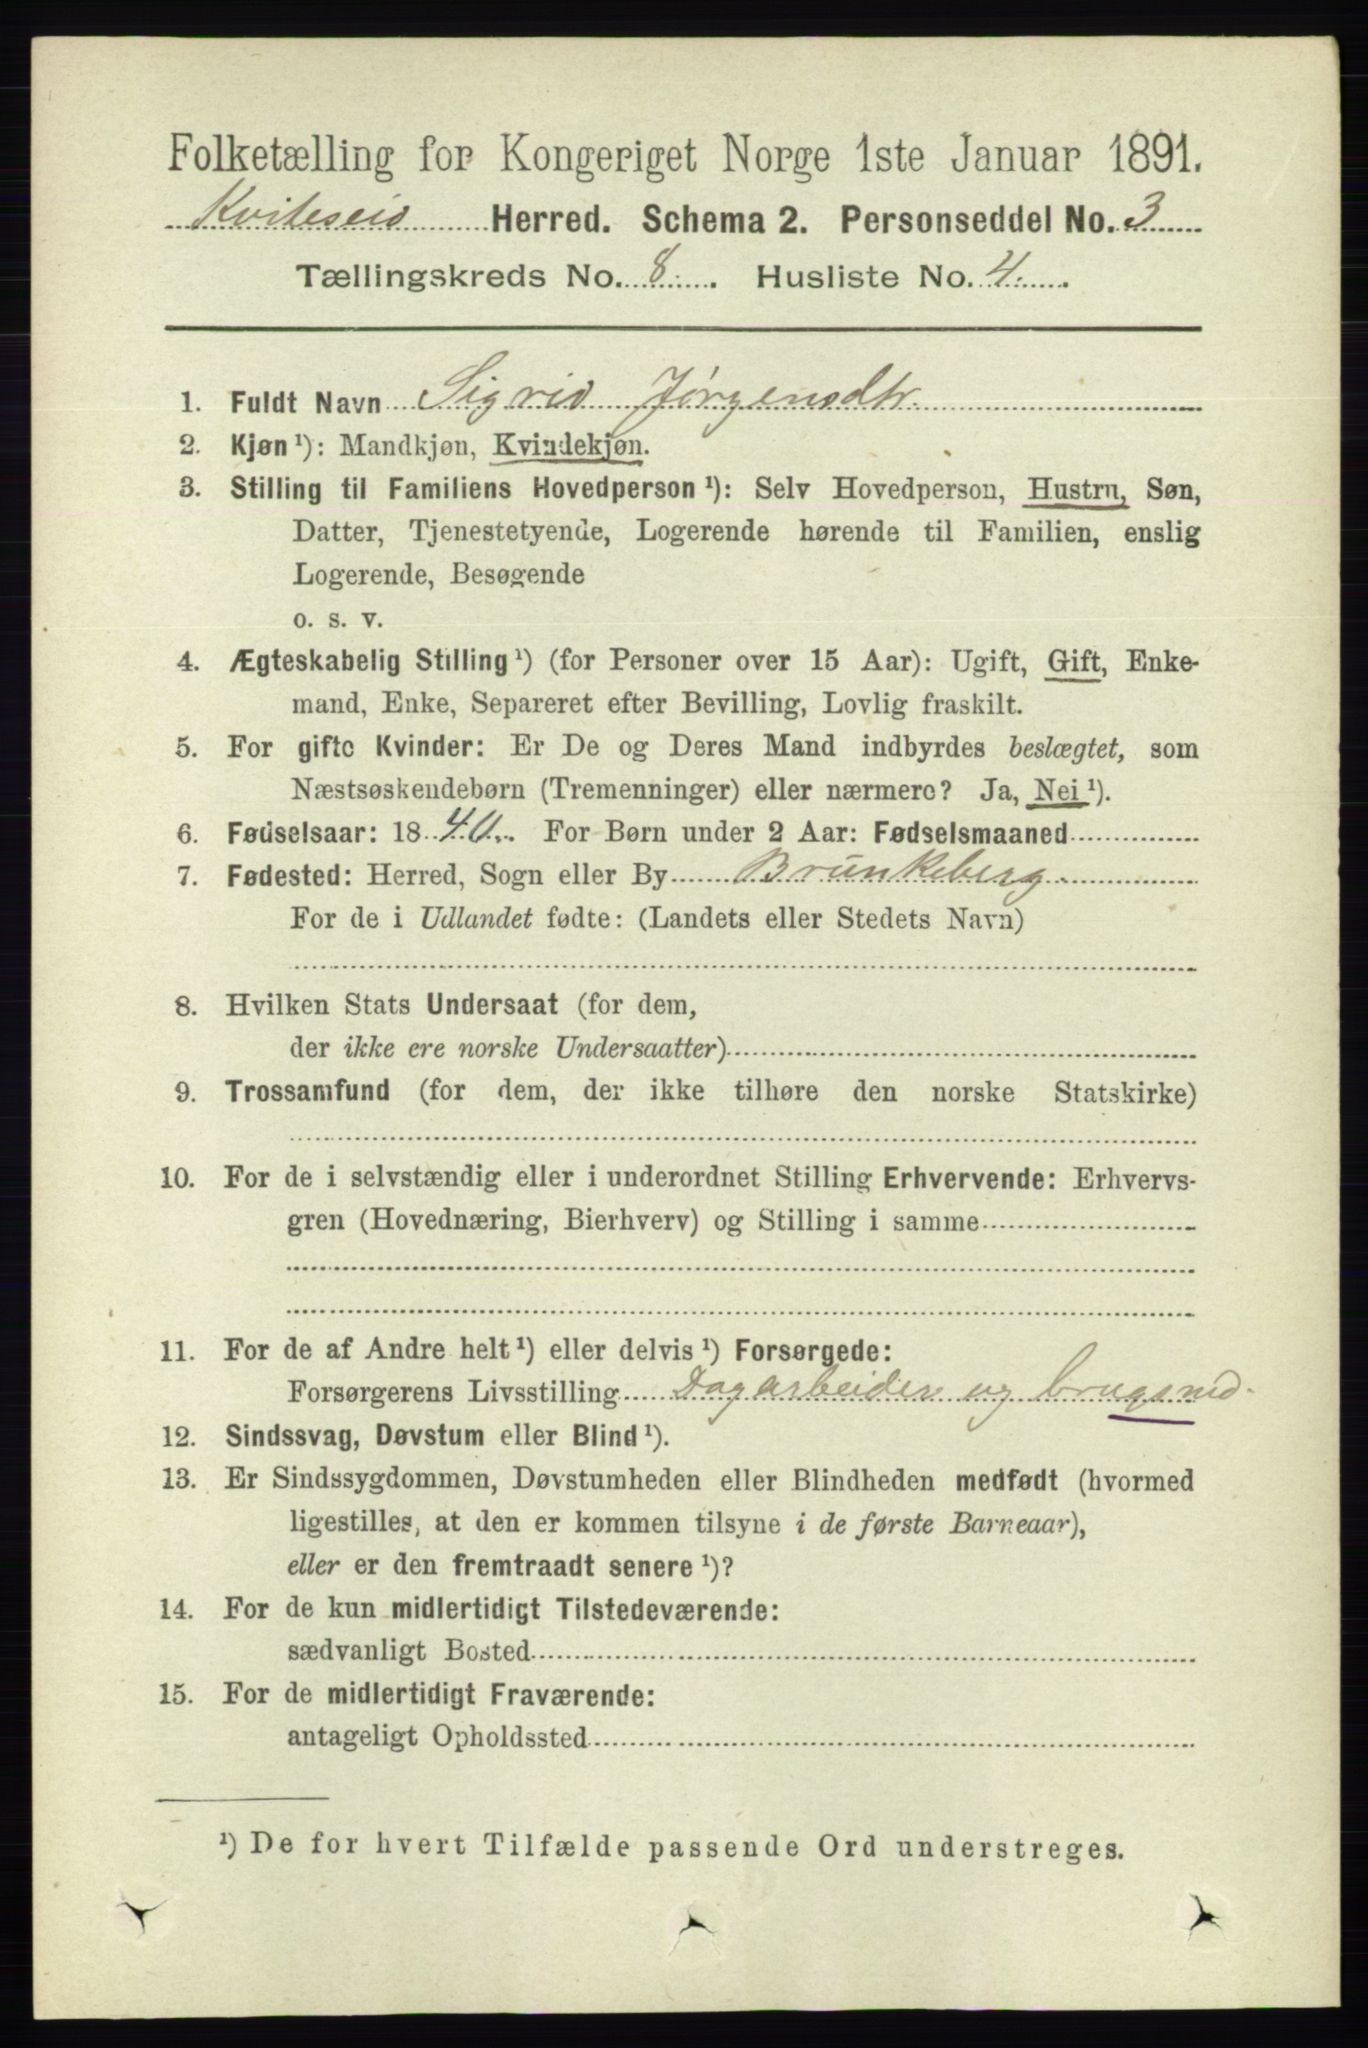 Folketælling for Kongeriget Norge 1ste Januar 1891.
Kviteseid Herred. Schema 2. Personseddel No. 3
Tællingskreds No. 8. Husliste No. 4.
1. Fuldt Navn Sigrid Jørgensdtr.
2. Kjøn ¹): Mandkjøn, Kvindekjøn.
3. Stilling til Familiens Hovedperson ¹): Selv Hovedperson, Hustru, Søn,
Datter, Tjenestetyende, Logerende hørende til Familien, enslig
Logerende, Besøgende
o. s. v.
4. Ægteskabelig Stilling ¹) (for Personer over 15 Aar): Ugift, Gift, Enke-
mand, Enke, Separeret efter Bevilling, Lovlig fraskilt.
5. For gifte Kvinder: Er De og Deres Mand indbyrdes beslægtet, som
Næstsøskendebørn (Tremenninger) eller nærmere? Ja, Nei ¹).
6. Fødselsaar: 1840. For Børn under 2 Aar: Fødselsmaaned
7. Fødested: Herred, Sogn eller By Brunkeberg
For de i Udlandet fødte: (Landets eller Stedets Navn)
8. Hvilken Stats Undersaat (for dem,
der ikke ere norske Undersaatter)
9. Trossamfund (for dem, der ikke tilhøre den norske Statskirke)
10. For de i selvstændig eller i underordnet Stilling Erhvervende: Erhvervs-
gren (Hovednæring, Bierhverv) og Stilling i samme
11. For de af Andre helt ¹) eller delvis ¹) Forsørgede:
Forsørgerens Livsstilling Dagarbeider og brugsmd.
12. Sindssvag, Døvstum eller Blind ¹).
13. Er Sindssygdommen, Døvstumheden eller Blindheden medfødt (hvormed
ligestilles, at den er kommen tilsyne i de første Barneaar),
eller er den fremtraadt senere ¹)?
14. For de kun midlertidigt Tilstedeværende:
sædvanligt Bosted
15. For de midlertidigt Fraværende:
antageligt Opholdssted
¹) De for hvert Tilfælde passende Ord understreges.